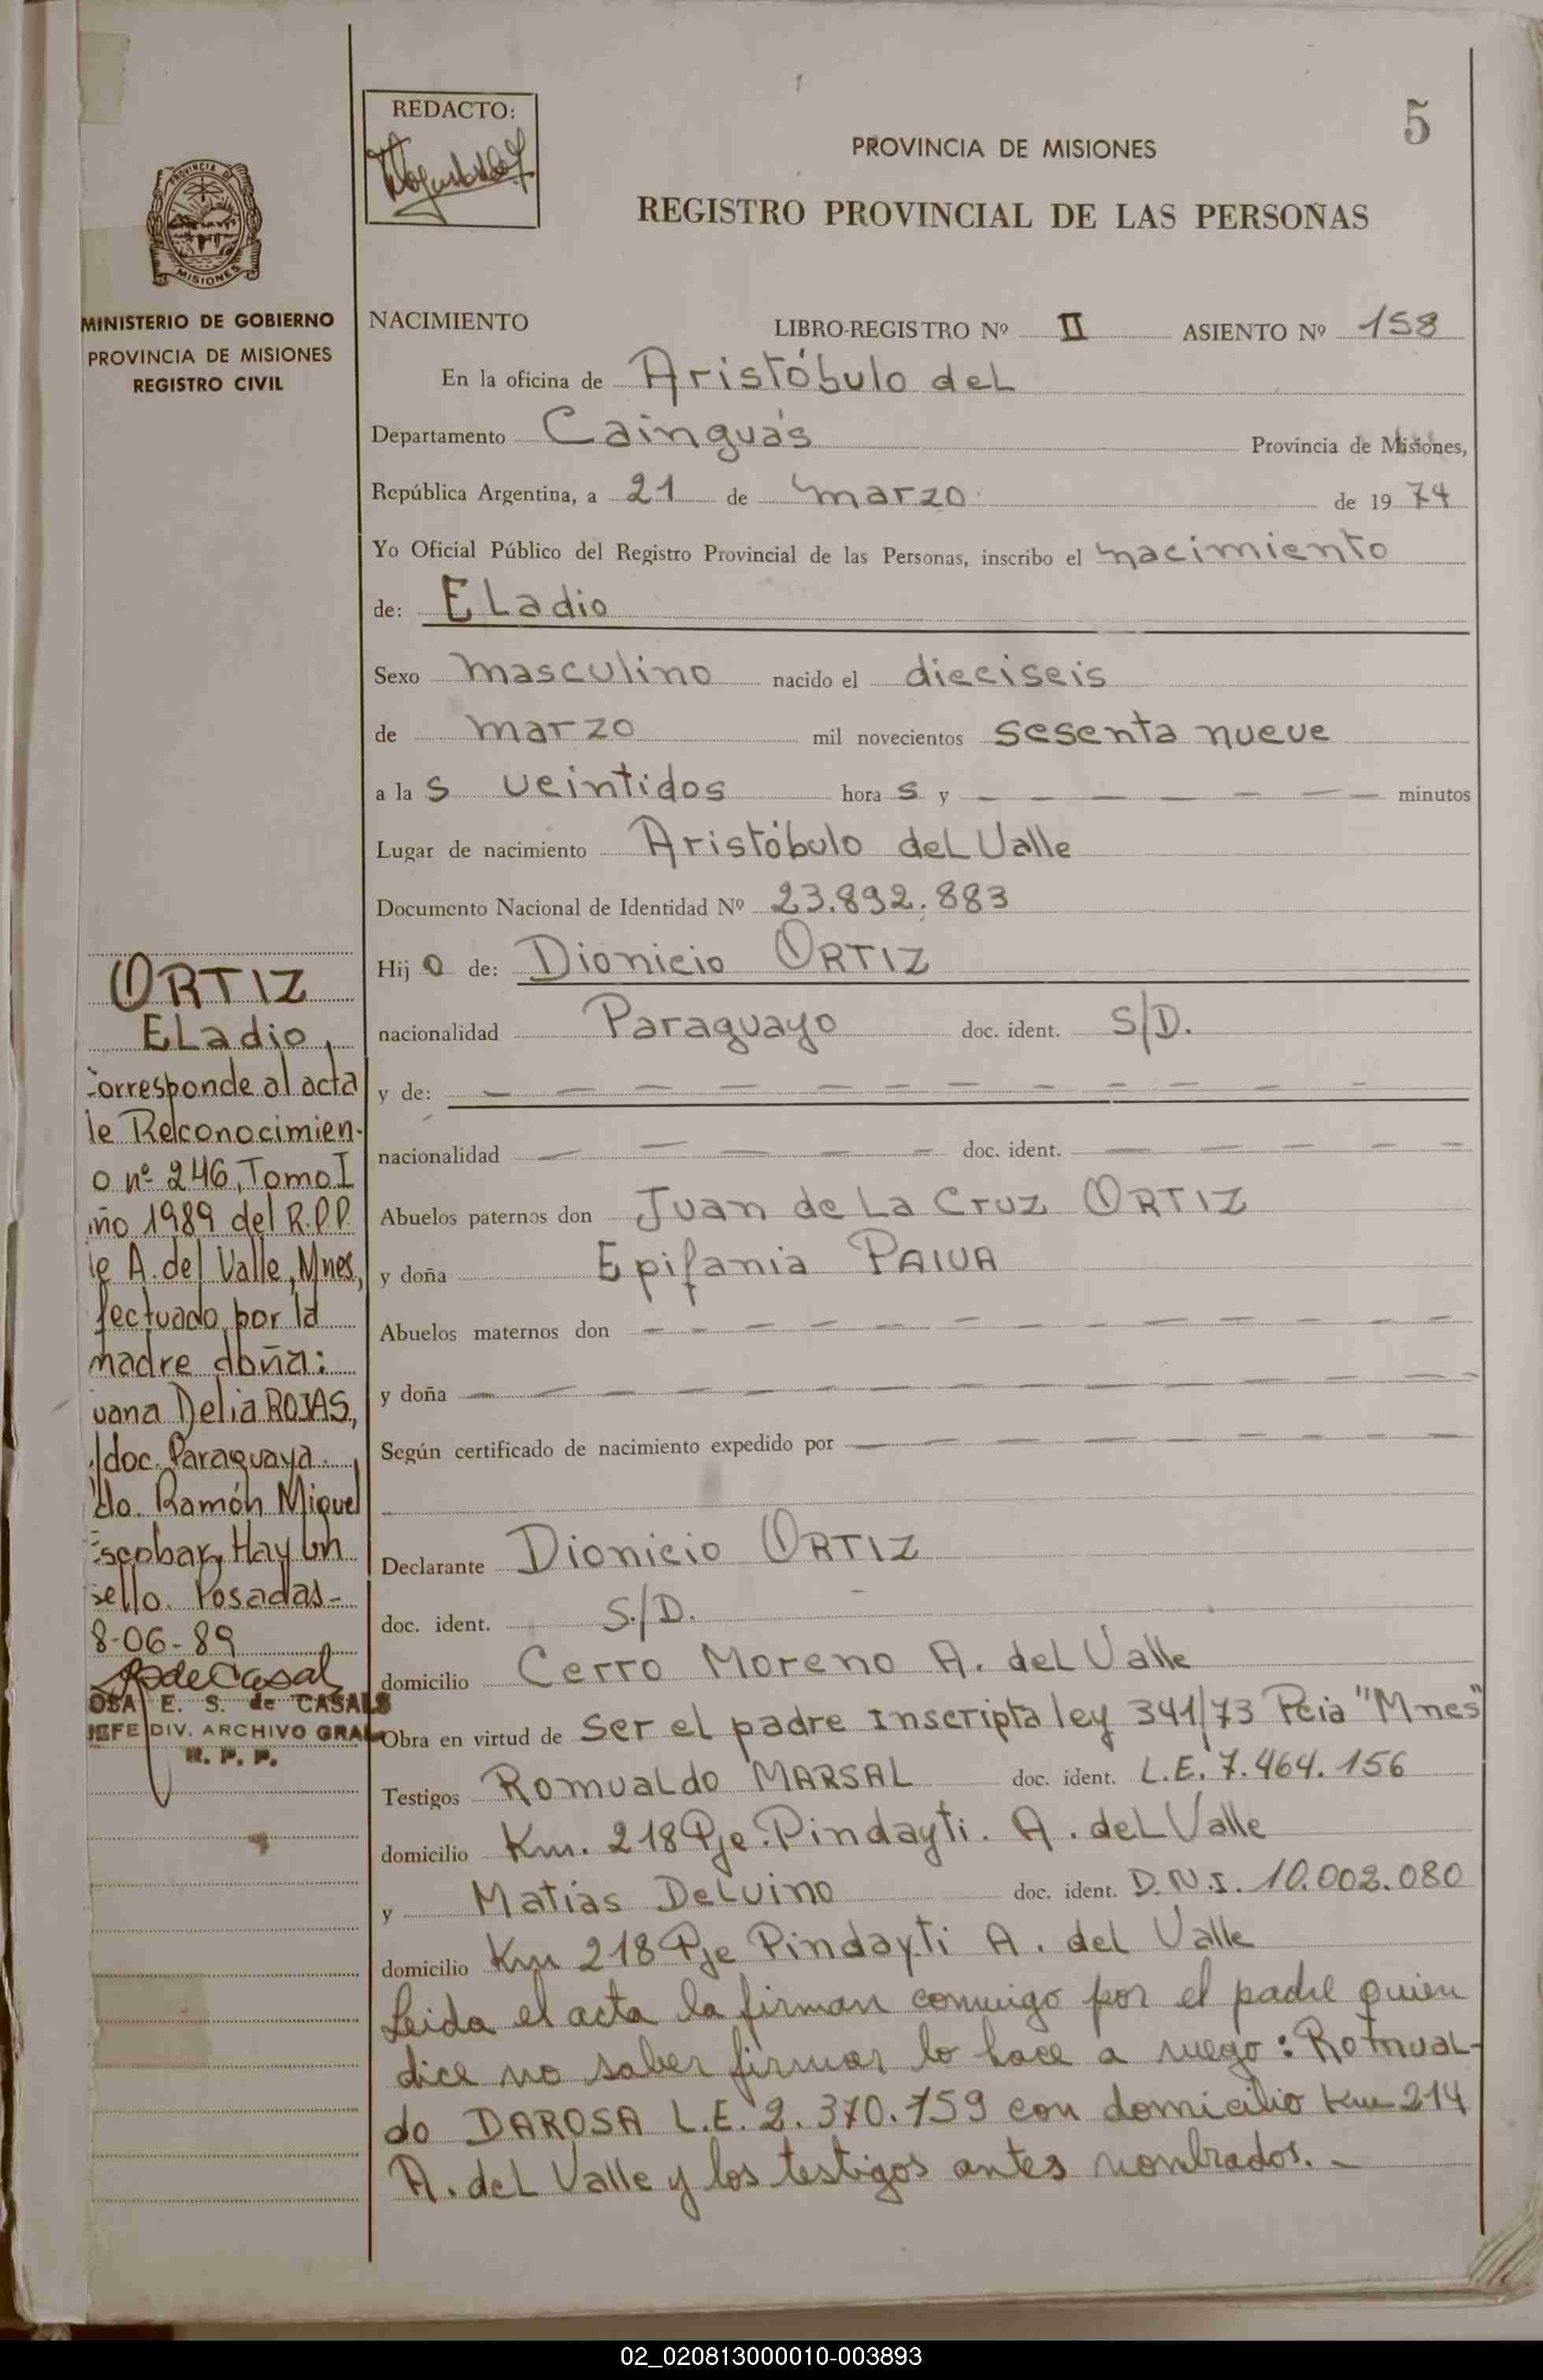 REDACTO:
5
PROVINCIA DE MISIONES
REGISTRO PROVINCIAL DE LAS PERSONAS
PROVINCIA DE
MISIONES
MINISTERIO DE GOBIERNO
PROVINCIA DE MISIONES
REGISTRO CIVIL
NACIMIENTO LIBRO-REGISTRO Nº II ASIENTO Nº 158
En la oficina de Aristóbulo del
Departamento Cainguás Provincia de Misiones,
República Argentina, a 21 de marzo de 1974
Yo Oficial Público del Registro Provincial de las Personas, inscribo el nacimiento
de: Eladio
Sexo masculino nacido el dieciseis
de marzo mil novecientos sesenta nueve
a las veintidos horas y — — — — — — — minutos
Lugar de nacimiento Aristóbulo del Valle
Documento Nacional de Identidad Nº 23.892.883
Hijo de: Dionicio ORTIZ
nacionalidad Paraguayo doc. ident. S/D.
y de: — — — — — — — — — — — — —
nacionalidad — — — — — doc. ident. — — — — —
Abuelos paternos don Juan de La Cruz ORTIZ
y doña Epifania PAIVA
Abuelos maternos don — — — — — — — — — — — —
y doña — — — — — — — — — — — — — —
Según certificado de nacimiento expedido por — — — — — — — —
Declarante Dionicio ORTIZ
doc. ident. S./D.
domicilio Cerro Moreno A. del Valle
Obra en virtud de ser el padre Inscripta ley 341/73 Pcia "Mnes"
Testigos Romualdo MARSAL doc. ident. L.E. 7.464.156
domicilio Km. 218 Pje. Pindayti. A. del Valle
y Matías Delvino doc. ident. D.N.I. 10.002.080
domicilio Km 218 Pje Pindayti A. del Valle
Leida el acta la firman conmigo por el padre quien
dice no saber firmar lo hace a ruego: Romual-
do DAROSA L.E. 2.370.159 con domicilio Km 214
A. del Valle y los testigos antes nombrados.-
ORTIZ
Eladio,
corresponde al acta
de Reconocimien-
o nº 246, Tomo I
año 1989 del R.P.P.
de A. del Valle, Mnes,
fectuado por la
madre doña:
uana Delia ROJAS,
/doc. Paraguaya.
do. Ramón Miguel
Escobar, Hay un
sello. Posadas-
8-06-89
OSA E. S. de CASALS
JEFE DIV. ARCHIVO GRAL
R. P. P.
02_020813000010-003893